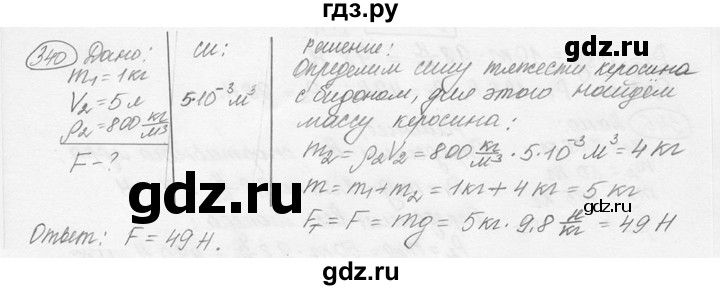 гдз.ру
340 Дано: СИ:
m₁ = 1 кг
V₂ = 5 л 5·10⁻³ м³
ρ₂ = 800 кг/м³
F - ?
Решение:
Определим силу тяжести керосина
с бидоном, для этого найдём
массу керосина:
m₂ = ρ₂V₂ = 800 кг/м³ · 5·10⁻³ м³ = 4 кг
m = m₁ + m₂ = 1 кг + 4 кг = 5 кг
Fт = F = mg = 5 кг · 9,8 Н/кг = 49 Н
Ответ: F = 49 Н.
gdz.ru
gdz.ru